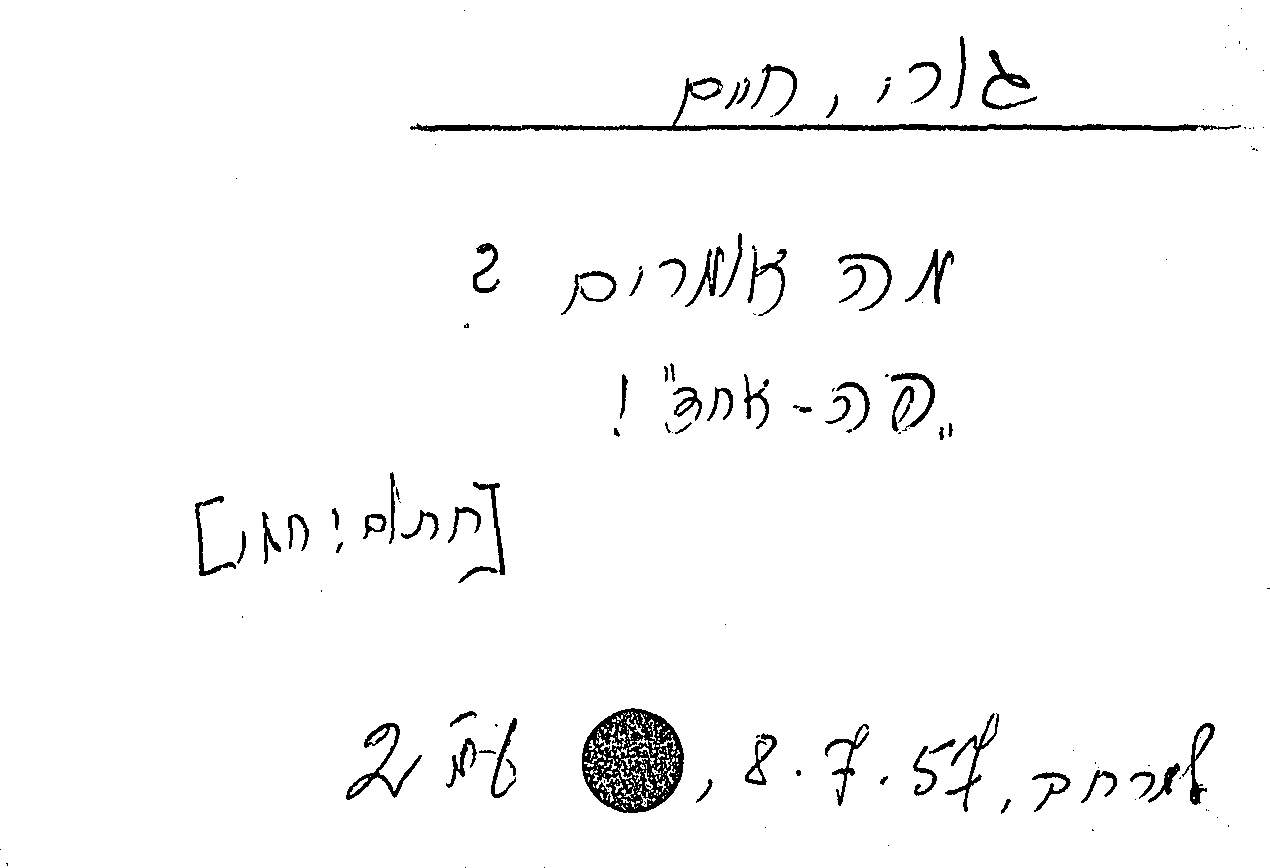 גורי, חיים
מה אומרים ?
"פה-אחד" !
[חתום: חגי]
למרחב, 8.7.57, עמ' 2